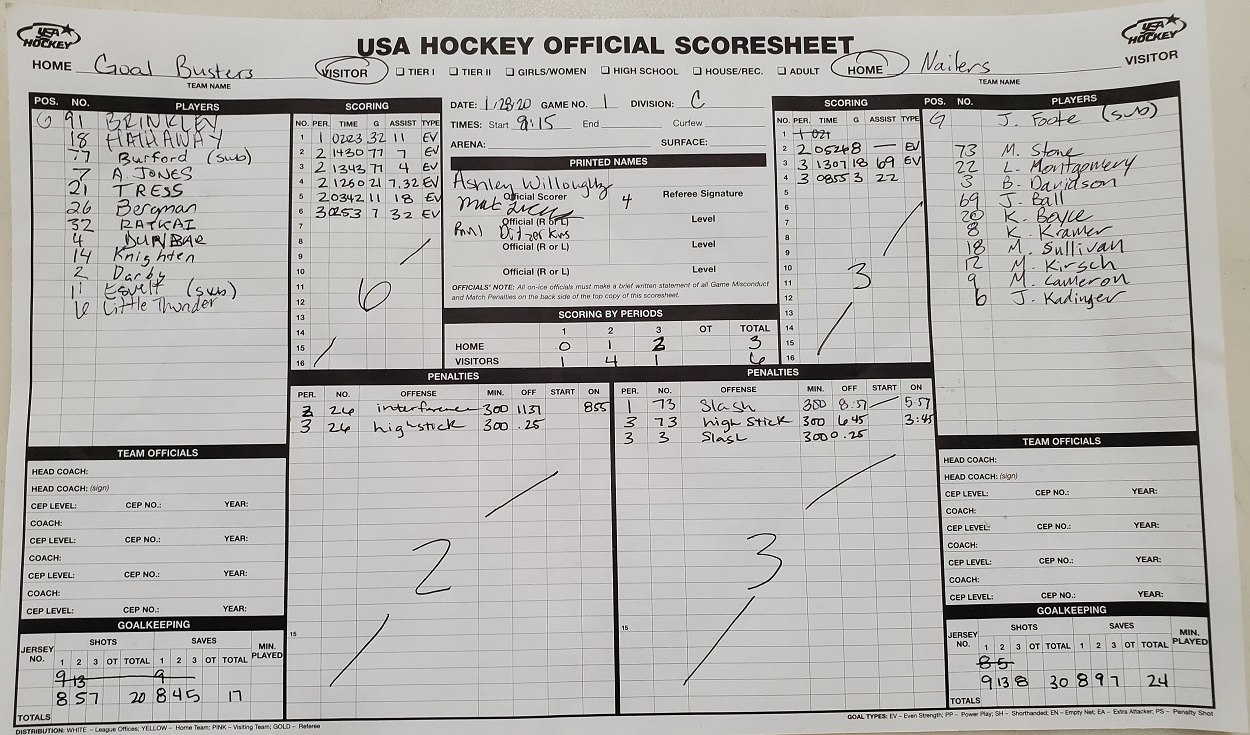 USA HOCKEY
USA HOCKEY OFFICIAL SCORESHEET
USA HOCKEY
HOME Goal Busters VISITOR TIER I TIER II GIRLS/WOMEN HIGH SCHOOL HOUSE/REC. ADULT HOME Nailers VISITOR
TEAM NAME
TEAM NAME
POS. NO. PLAYERS
G 91 BRINKLEY
18 HATHAWAY
77 Burford (sub)
7 A. JONES
21 TRESS
26 Bergman
32 RATKAI
4 DUNBAR
14 Knighten
2 Darby
11 Esvelt (sub)
Little Thunder
SCORING
NO. PER. TIME G ASSIST TYPE
1 1 0223 32 11 EV
2 2 1430 77 7 EV
3 2 1343 77 4 EV
4 2 1250 21 7,32 EV
5 2 0342 11 18 EV
6 3 0253 7 32 EV
7
8
9
10
11
12
13
14
15
16
6
DATE: 1/28/20 GAME NO. 1 DIVISION: C
TIMES: Start 9:15 End Curfew
ARENA: SURFACE:
PRINTED NAMES
Ashley Willoughby
Official Scorer 4 Referee Signature
Official (R or L) Level
Official (R or L) Level
Official (R or L) Level
OFFICIALS' NOTE: All on-ice officials must make a brief written statement of all Game Misconduct
and Match Penalties on the back side of the top copy of this scoresheet.
SCORING BY PERIODS
1 2 3 OT TOTAL
HOME 0 1 2 3
VISITORS 1 4 1 6
SCORING
NO. PER. TIME G ASSIST TYPE
1 1 021
2 2 0526 8 — EV
3 3 1307 18 69 EV
4 3 0855 3 22
5
6
7
8
9
10
11
12
13
14
15
16
3
POS. NO. PLAYERS
G J. Foote (sub)
73 M. Stone
22 L. Montgomery
3 B. Davidson
69 J. Ball
20 K. Boyce
8 K. Kramer
18 M. Sullivan
12 M. Kirsch
9 M. Cameron
6 J. Kadinger
PENALTIES
PER. NO. OFFENSE MIN. OFF START ON
2 26 interference 300 1137 855
3 26 highstick 300 .25
15
2
PENALTIES
PER. NO. OFFENSE MIN. OFF START ON
1 73 Slash 300 8:57 5:57
3 73 high stick 300 645 3:45
3 3 Slash 300 0.25
15
3
TEAM OFFICIALS
HEAD COACH:
HEAD COACH: (sign)
CEP LEVEL: CEP NO.: YEAR:
COACH:
CEP LEVEL: CEP NO.: YEAR:
COACH:
CEP LEVEL: CEP NO.: YEAR:
COACH:
CEP LEVEL: CEP NO.: YEAR:
GOALKEEPING
JERSEY NO. SHOTS SAVES MIN. PLAYED
1 2 3 OT TOTAL 1 2 3 OT TOTAL
9 13 9
8 5 7 20 8 4 5 17
TOTALS
TEAM OFFICIALS
HEAD COACH:
HEAD COACH: (sign)
CEP LEVEL: CEP NO.: YEAR:
COACH:
CEP LEVEL: CEP NO.: YEAR:
COACH:
CEP LEVEL: CEP NO.: YEAR:
COACH:
CEP LEVEL: CEP NO.: YEAR:
GOALKEEPING
JERSEY NO. SHOTS SAVES MIN. PLAYED
1 2 3 OT TOTAL 1 2 3 OT TOTAL
8 5
9 13 8 30 8 9 7 24
TOTALS
DISTRIBUTION: WHITE – League Offices; YELLOW – Home Team; PINK – Visiting Team; GOLD – Referee
GOAL TYPES: EV – Even Strength; PP – Power Play; SH – Shorthanded; EN – Empty Net; EA – Extra Attacker; PS – Penalty Shot